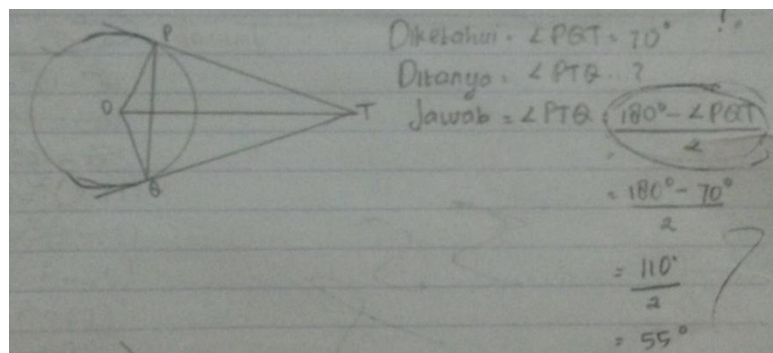 P
O
T
Q
Diketahui = ∠PQT = 70°
Ditanya = ∠PTQ...?
Jawab = ∠PTQ = 180° - ∠PQT
2
= 180° - 70°
2
= 110°
2
= 55°